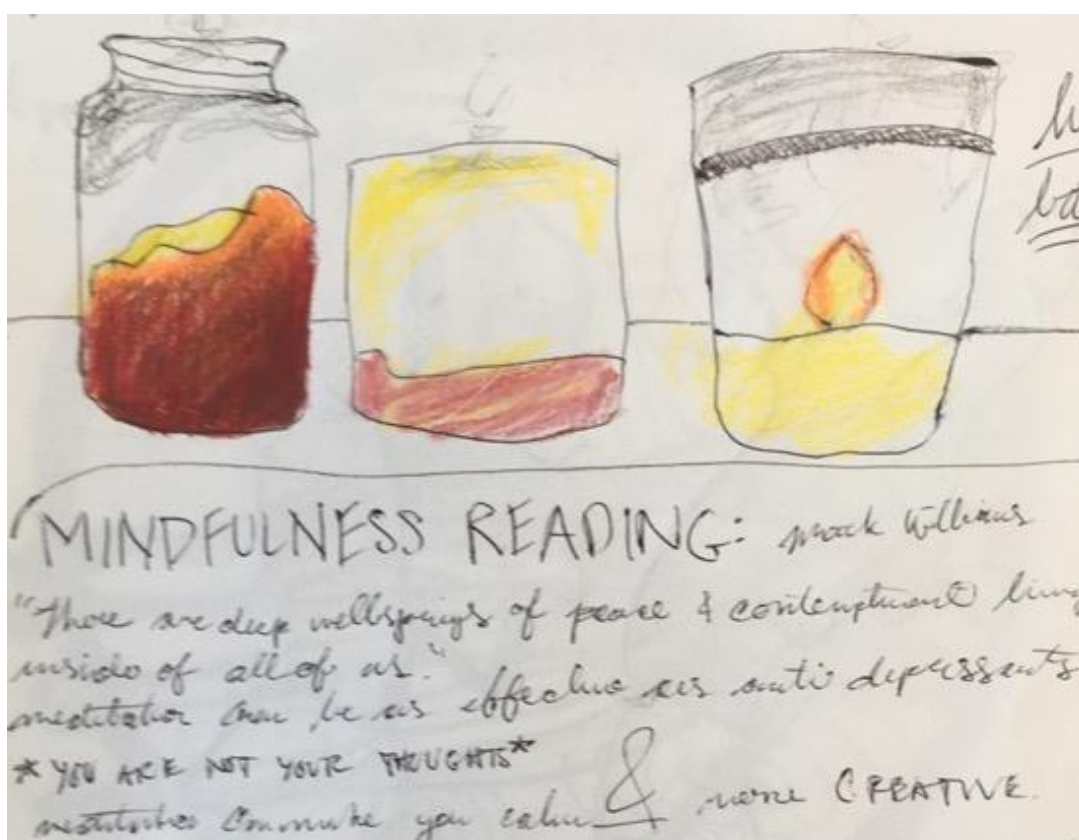 MINDFULNESS READING: Mark Williams
"There are deep wellsprings of peace & contentment living
inside of all of us."
meditation can be as effective as anti depressants
*YOU ARE NOT YOUR THOUGHTS*
you calm & more CREATIVE.